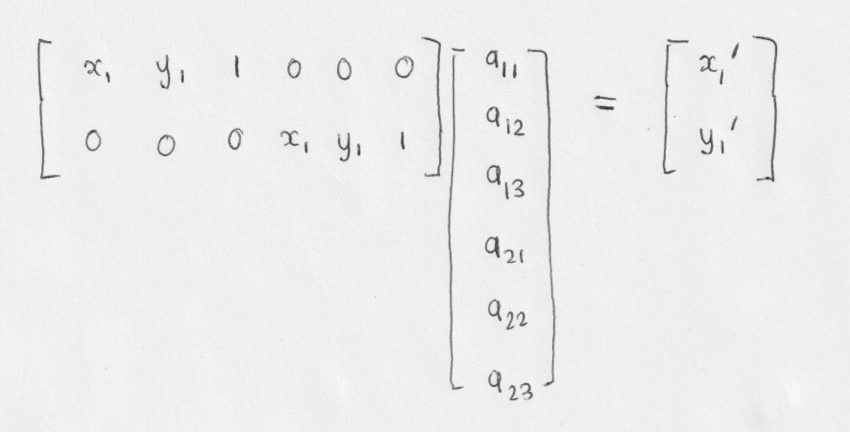 x₁ y₁ 1 0 0 0
0 0 0 x₁ y₁ 1
a₁₁
a₁₂
a₁₃
a₂₁
a₂₂
a₂₃
=
x₁′
y₁′